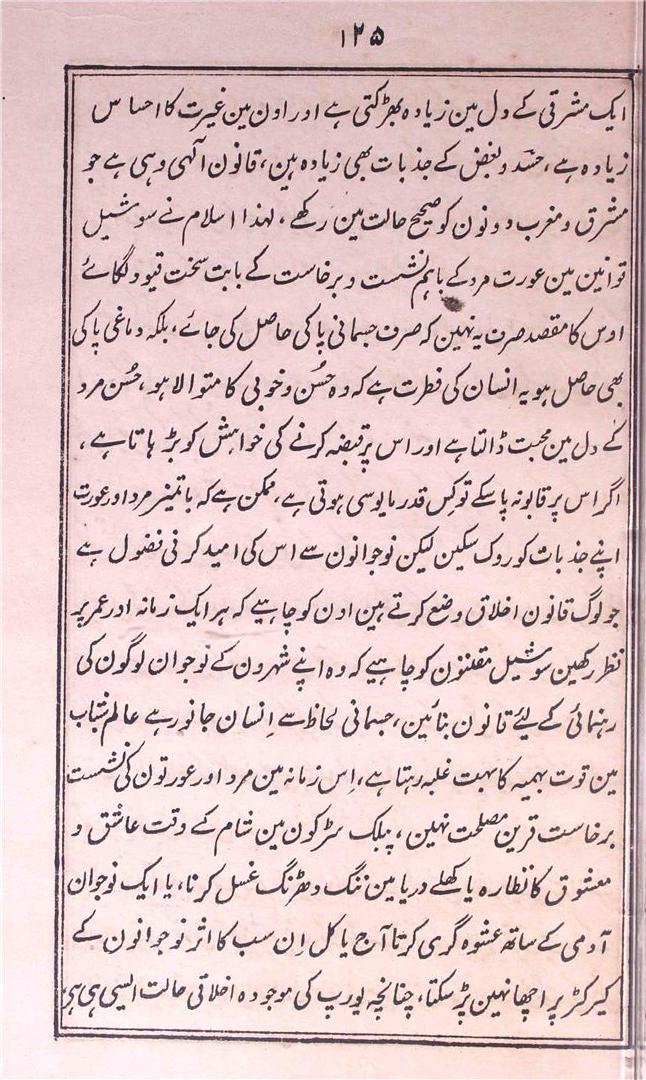 ۱۲۵
ایک مشرقی کے دل مین زیادہ بھڑکتی ہے اور اون مین غیرت کا احساس
زیادہ ہے، حسد و بغض کے جذبات بھی زیادہ ہین، قانون الٰہی وہی ہے جو
مشرق و مغرب دونون کو صحیح حالت مین رکھے، لہذا اسلام نے سوشیل
قوانین مین عورت مرد کے باہم نشست و برخاست کے بابت سخت قیود لگائے
اوس کا مقصد صرف یہ نہین کہ صرف جسمانی پاکی حاصل کی جائے، بلکہ دماغی پاکی
بھی حاصل ہو یہ انسان کی فطرت ہے کہ وہ حُسن و خوبی کا متوالا ہو، حُسن مرد
کے دل مین محبت ڈالتا ہے اور اس پر قبضہ کرنے کی خواہش کو بڑہاتا ہے،
اگر اس پر قابو نہ پا سکے تو کِس قدر مایوسی ہوتی ہے، ممکن ہے کہ باتمیز مرد اور عورت
اپنے جذبات کو روک سکین لیکن نوجوانون سے اس کی امید کرنی فضول ہے
جو لوگ قانون اخلاق وضع کرتے ہین اون کو چاہیے کہ ہر ایک زمانہ اور عمر پر
نظر رکھین سوشیل مقننون کو چاہیے کہ وہ اپنے شہرون کے نوجوان لوگون کی
رہنمائی کے لیٔے قانون بنائین، جسمانی لحاظ سے اِنسان جانور ہے عالم شباب
مین قوت بہیمہ کا بہت غلبہ رہتا ہے، اِس زمانہ مین مرد اور عورتون کی نشست
برخاست قرین مصلحت نہین، پبلک سڑکون مین شام کے وقت عاشق و
معشوق کا نظارہ یا کھلے دریا مین ننگ دھڑنگ غسل کرنا، یا ایک نوجوان
آدمی کے ساتھ عشوہ گری کرنا آج یا کل اِن سب کا اثر نوجوانون کے
کیرکٹر پر اچھا نہین پڑ سکتا، چنانچہ یورپ کی موجودہ اخلاقی حالت ایسی ہی ہی